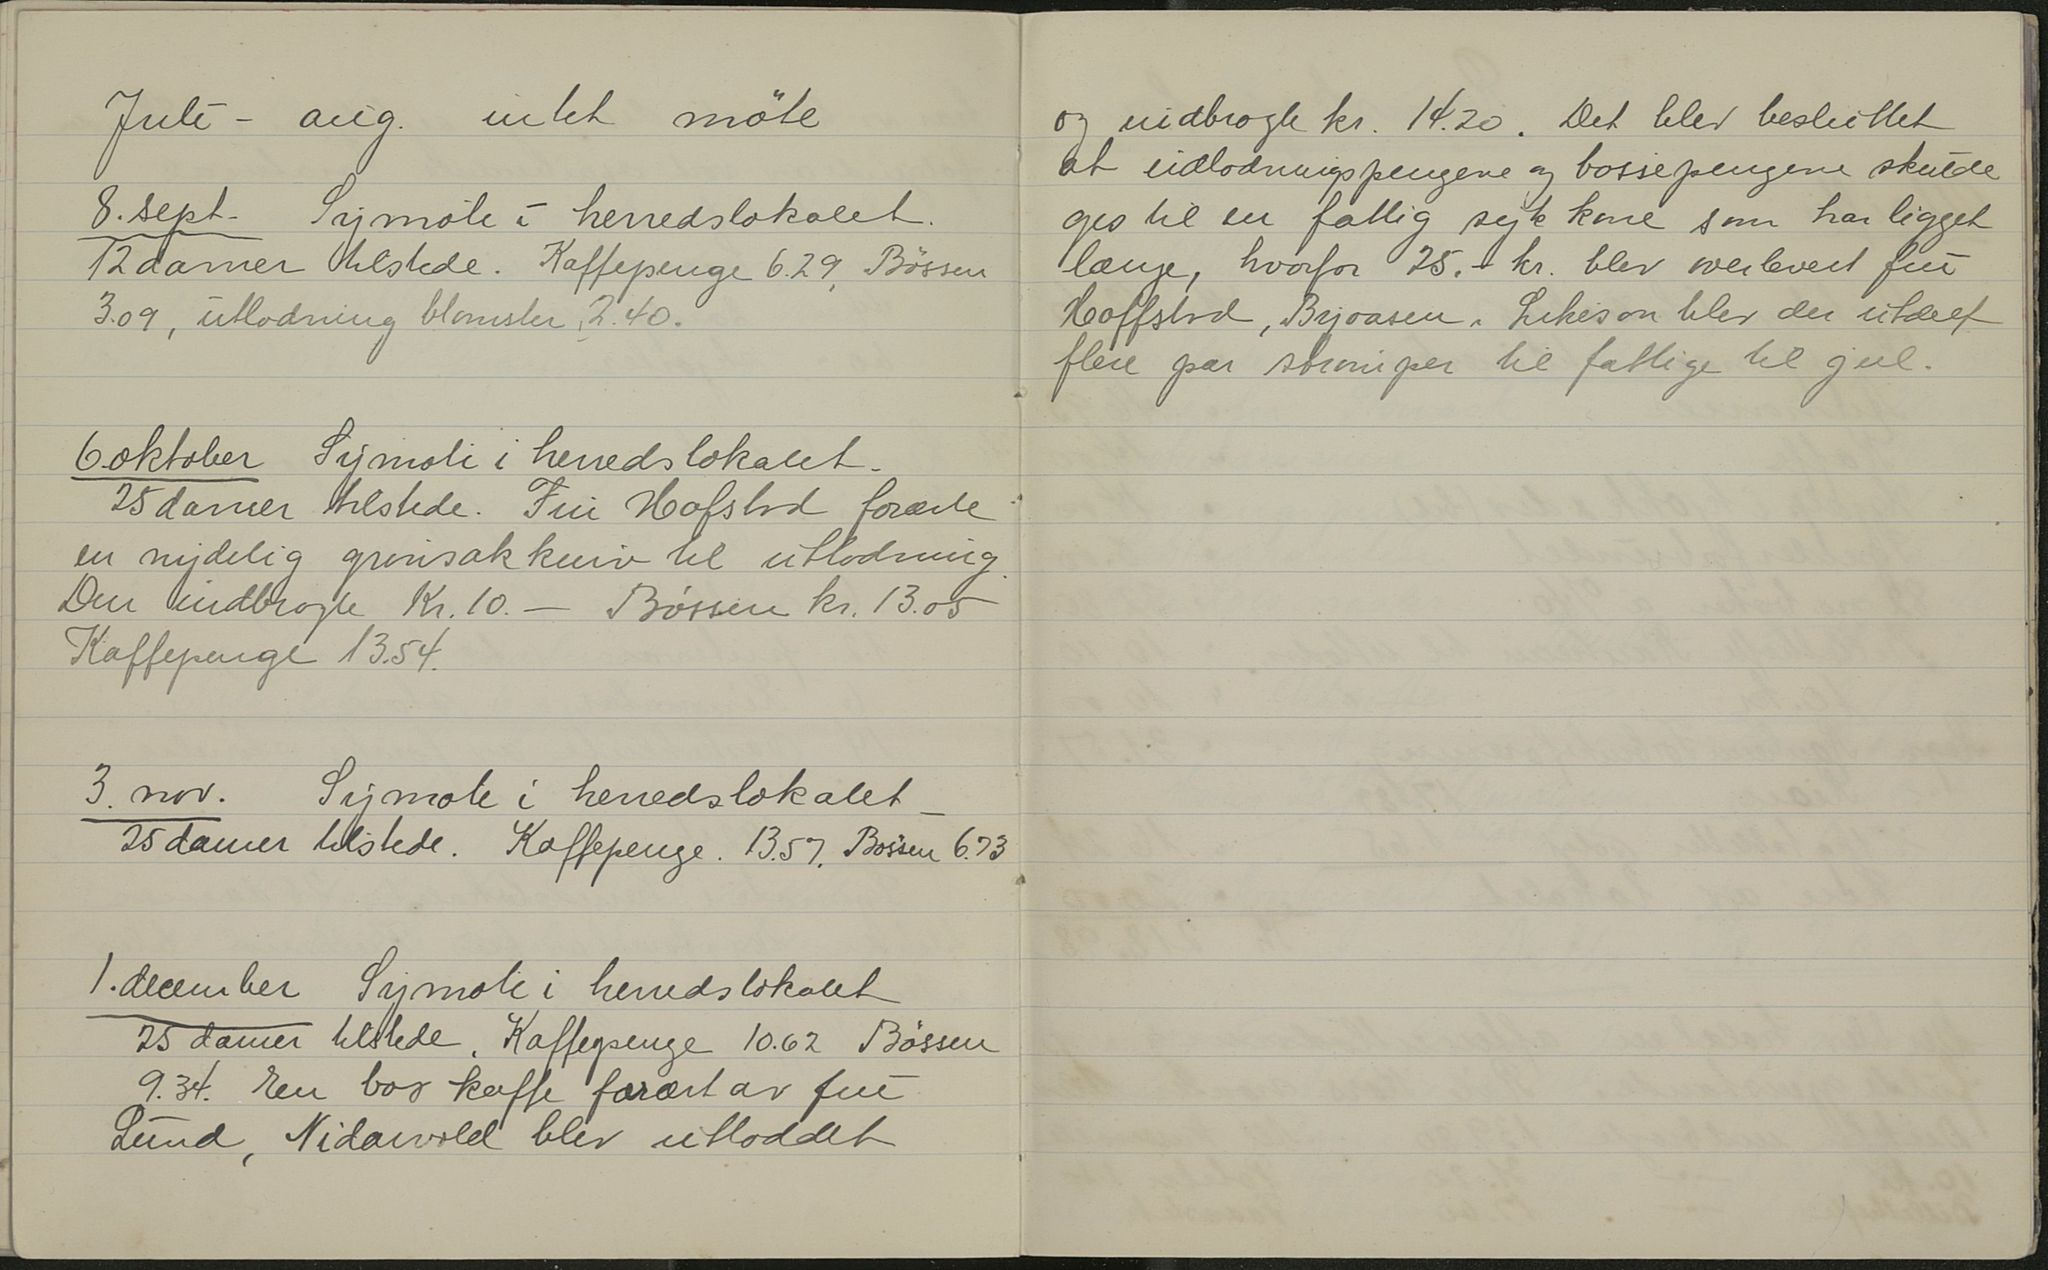 Juli - aug. intet möte
8. sept. Symöte i herredslokalet.
12 damer tilstede. Kaffepenge 6.29, Bössen
3.09, utlodning blomster, 2.40.
6. oktober Symöte i herredslokalet.
25 damer tilstede. Fru Hofstad forærte
en nydelig grönsakkurv til utlodning.
Den indbragte Kr. 10. — Bössen kr. 13.05
Kaffepenge 13.54.
3. nov. Symöte i herredslokalet
25 damer tilstede. Kaffepenge. 13.57, Bössen 6.73
1. december Symöte i herredslokalet
25 damer tilstede. Kaffepenge 10.62 Bössen
9.34. En box kaffe forært av fru
Lund, Nidarvold blev utloddet
og indbragte kr. 14.20. Det blev besluttet
at utlodningspengene og bössepengene skulde
ges til en fattig syk kone som har ligget
længe, hvorfor 25.- kr. blev overlevert fru
Hoffstad, Byaasen. Likeson blev der utdelt
flere par strömper til fattige til jul.